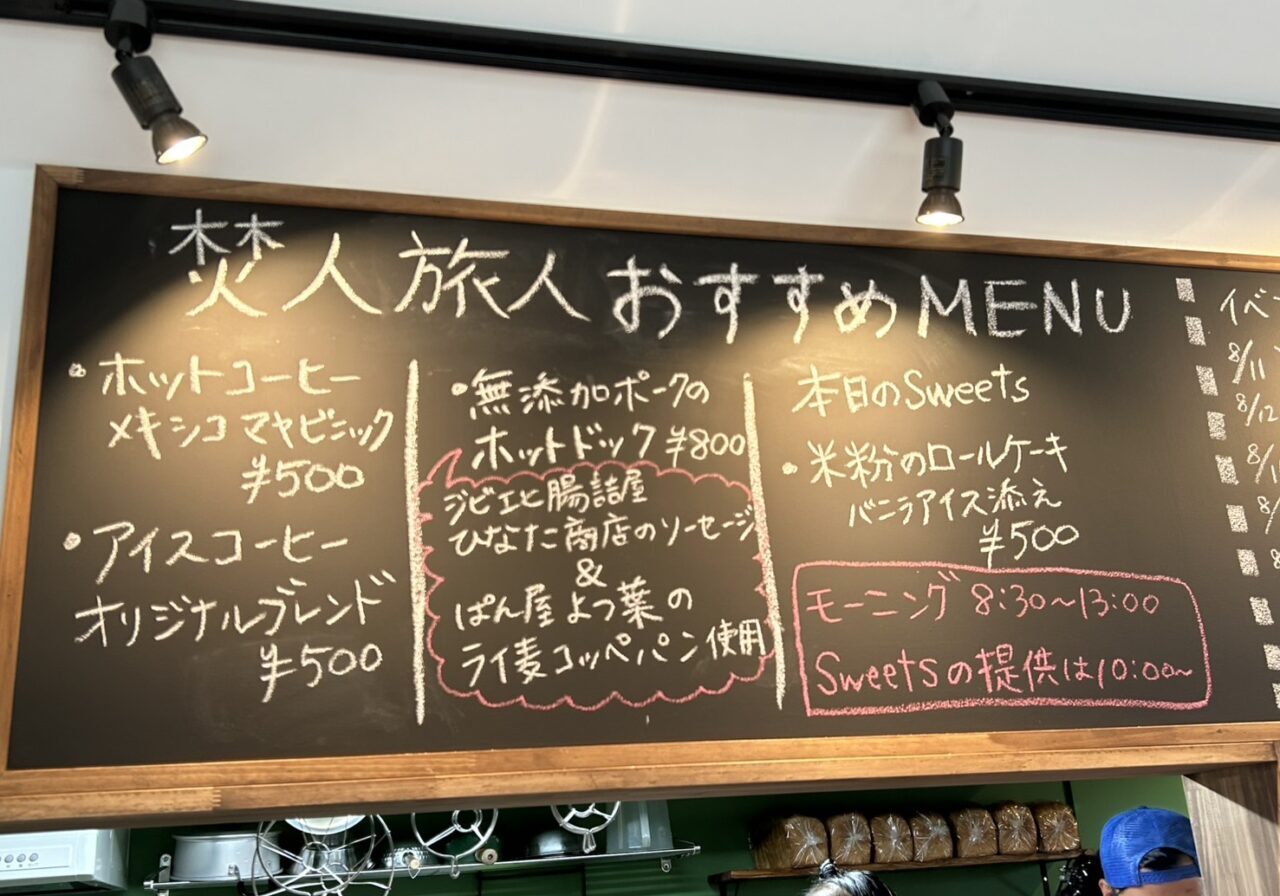 焚人旅人おすすめMENU
・ホットコーヒー
メキシコマヤビニック
¥500
・アイスコーヒー
オリジナルブレンド
¥500
・無添加ポークの
ホットドック ¥800
ジビエと腸詰屋
ひなた商店のソーセージ
&
ぱん屋よつ葉の
ライ麦コッペパン使用
本日のSweets
・米粉のロールケーキ
バニラアイス添え
¥500
モーニング 8:30~13:00
Sweetsの提供は10:00~
イベ
8/11
8/12